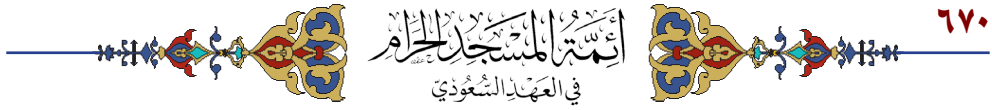 ٦٧٠
أَئِمَّةُ المَسْجِدِ الحَرَامِ
في العَهْدِ السُّعُودِيّ